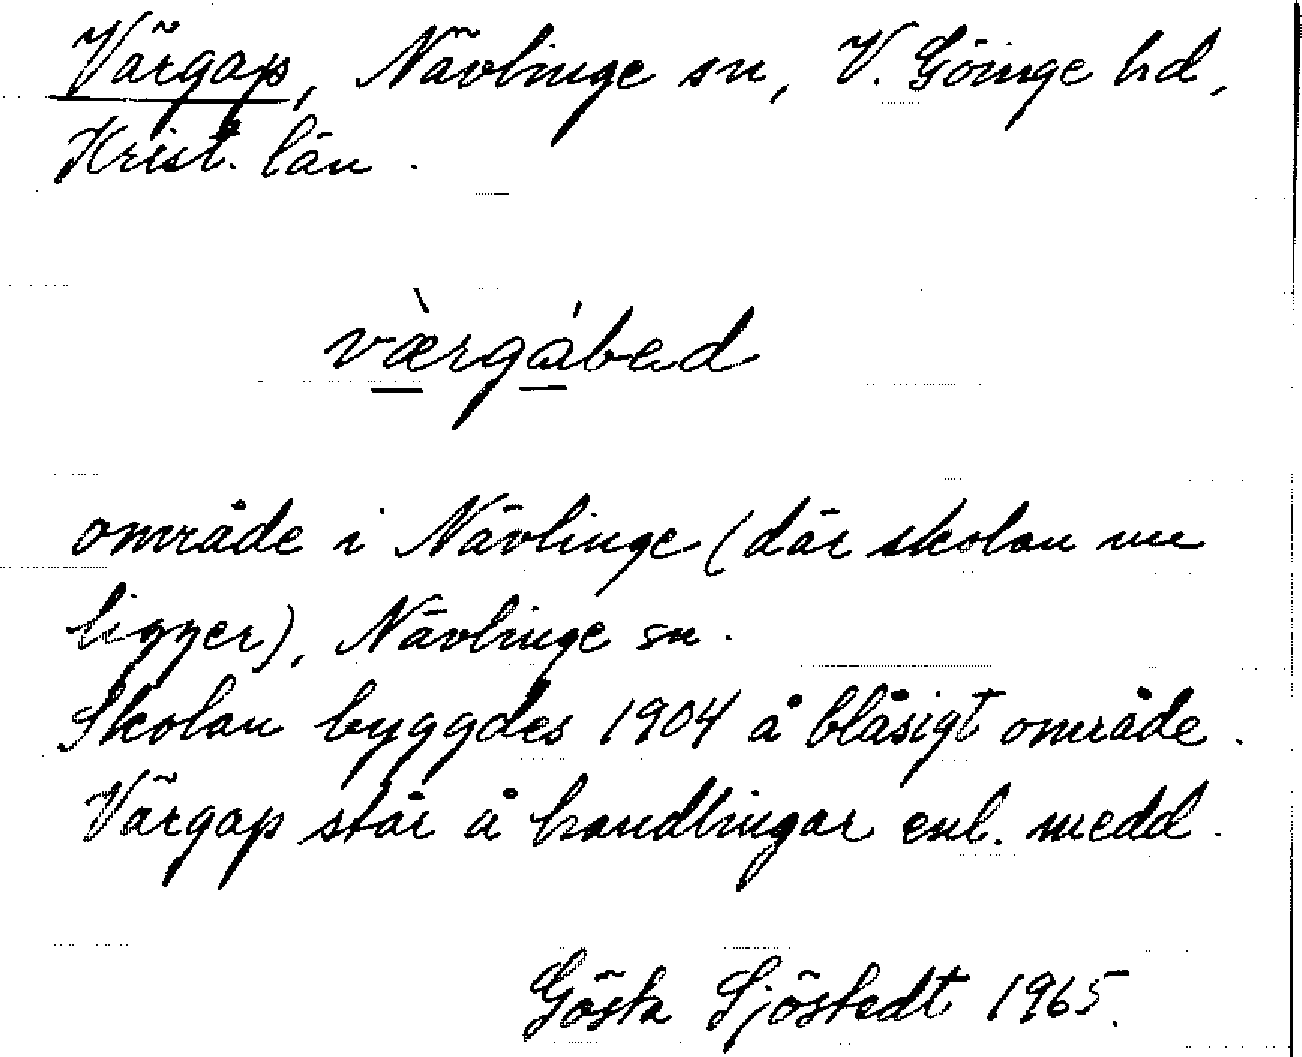 Värgap, Nävlinge sn, V. Göinge hd,
Krist. län.
værgábad
område i Nävlinge (där skolan nu
ligger), Nävlinge sn.
Skolan byggdes 1904 å blåsigt område.
Värgap står å handlingar enl. medd.
Gösta Sjöstedt 1965.